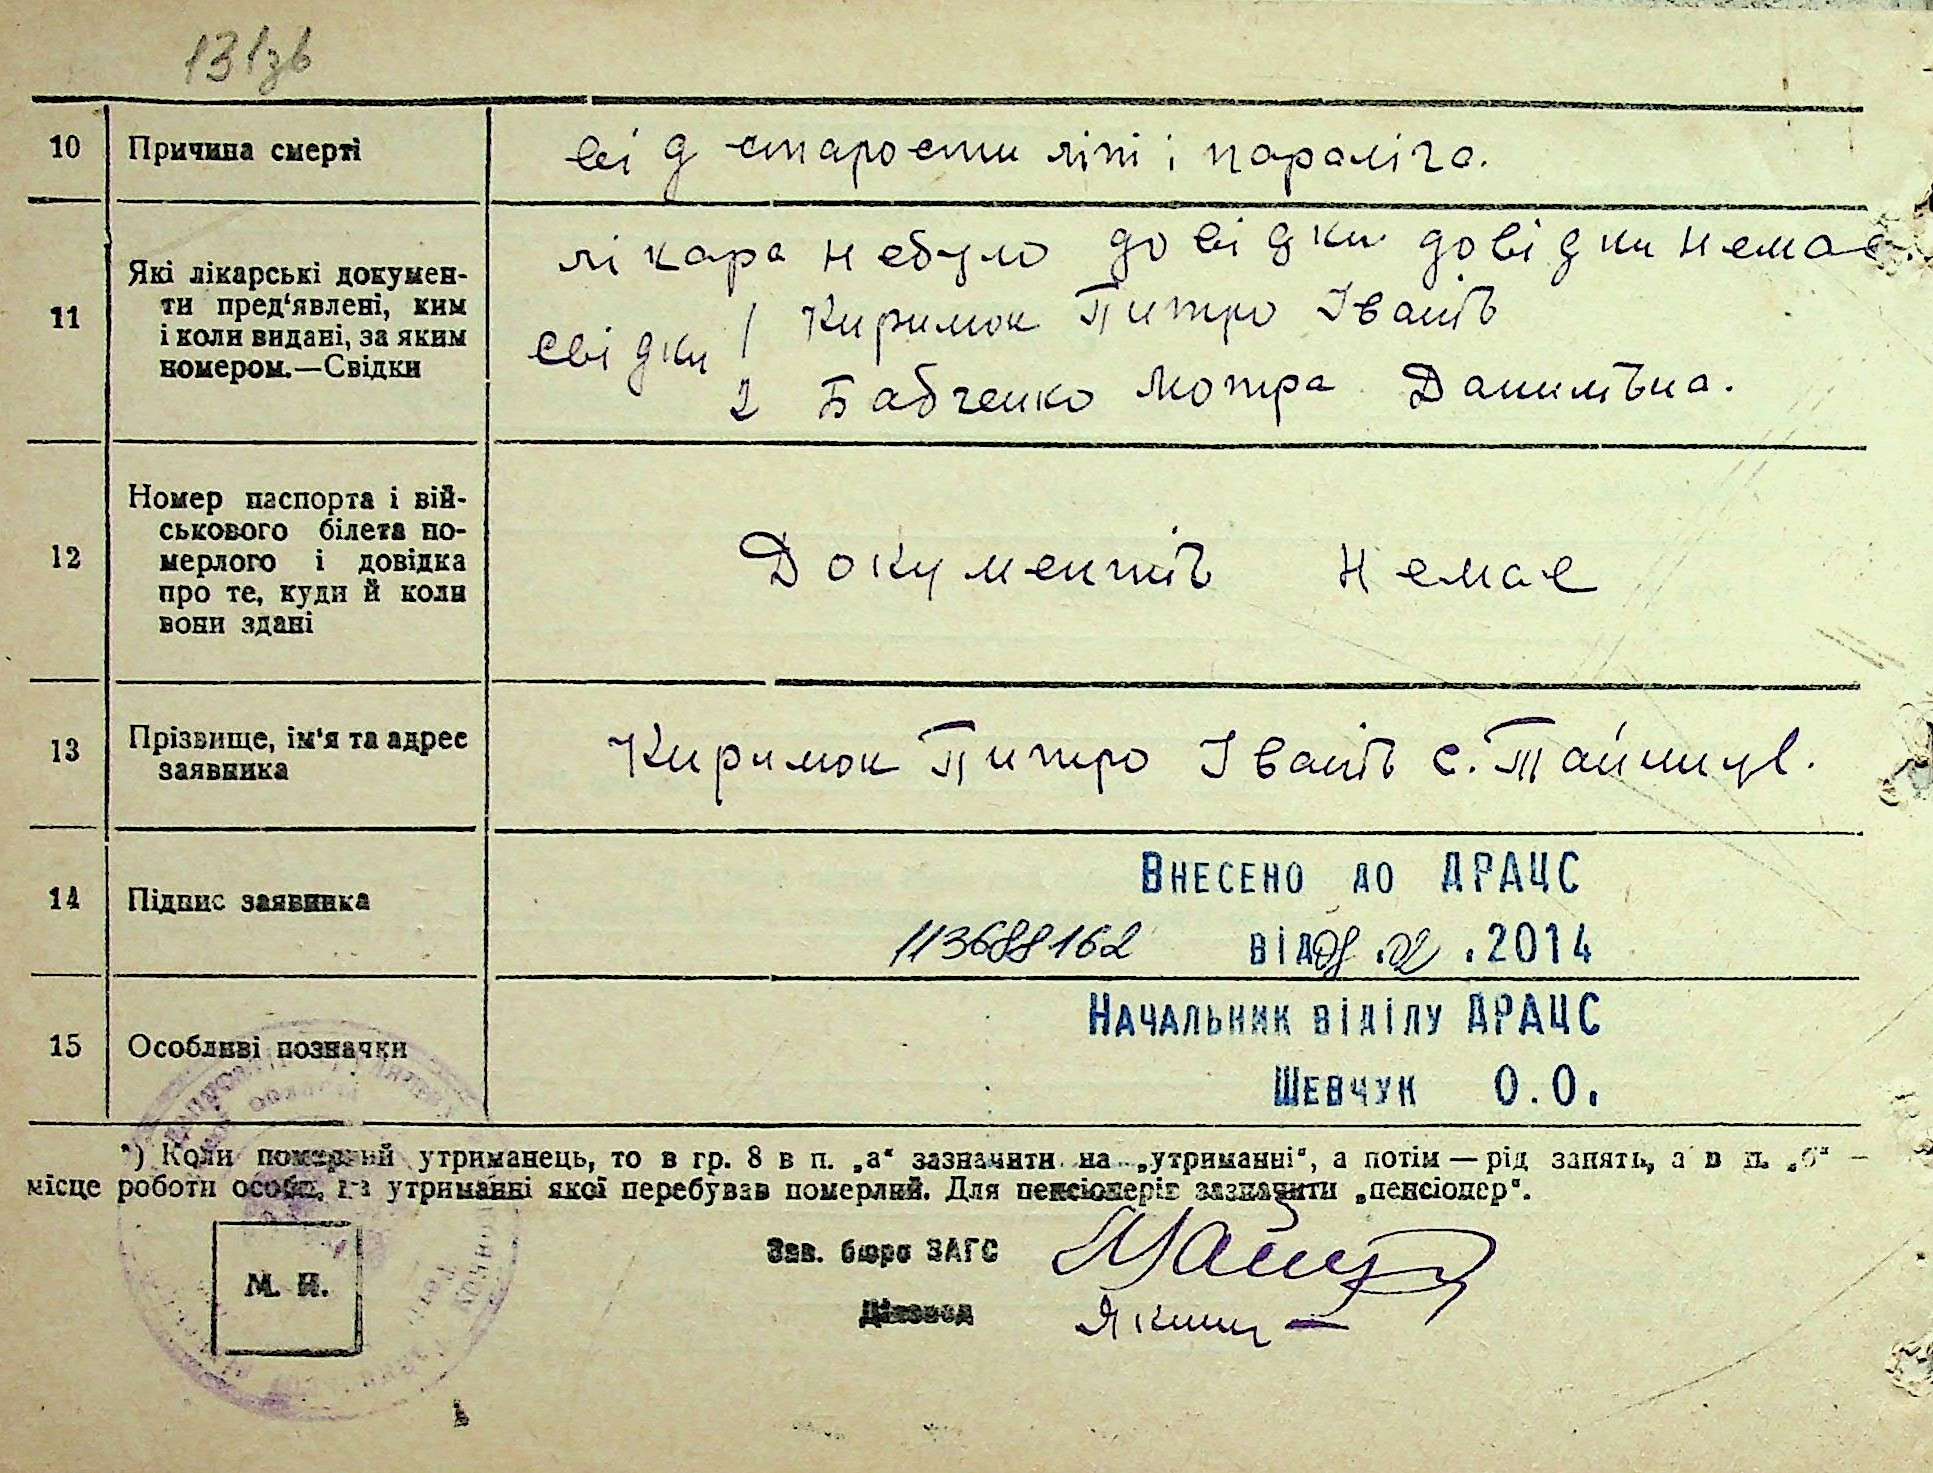 131зв
10 Причина смерті
від старости літ і параліча.
11 Які лікарські докумен-
ти пред'явлені, ким
і коли видані, за яким
номером.—Свідки
лікара небуло довідки довідки немає.
свідки 1 Киримок Питро Іванів
2 Бабченко Мотра Данилівна.
12 Номер паспорта і вій-
ськового білета по-
мерлого і довідка
про те, куди й коли
вони здані
Документів немає
13 Прізвище, ім'я та адрес
заявника
Киримок Питро Іванів с.
14 Підпис заявника
Внесено до ДРАЦС
113688162 від .02.2014
15 Особливі позначки
Начальник відділу ДРАЦС
Шевчук О.О.
*) Коли померлий утриманець, то в гр. 8 в п. „а“ зазначити на „утриманні“, а потім — рід занять, а в п. „б“ —
місце роботи особи, на утриманні якої перебував померлий. Для пенсіонерів зазначити „пенсіонер“.
Зав. бюро ЗАГС
Діловод
М. П.